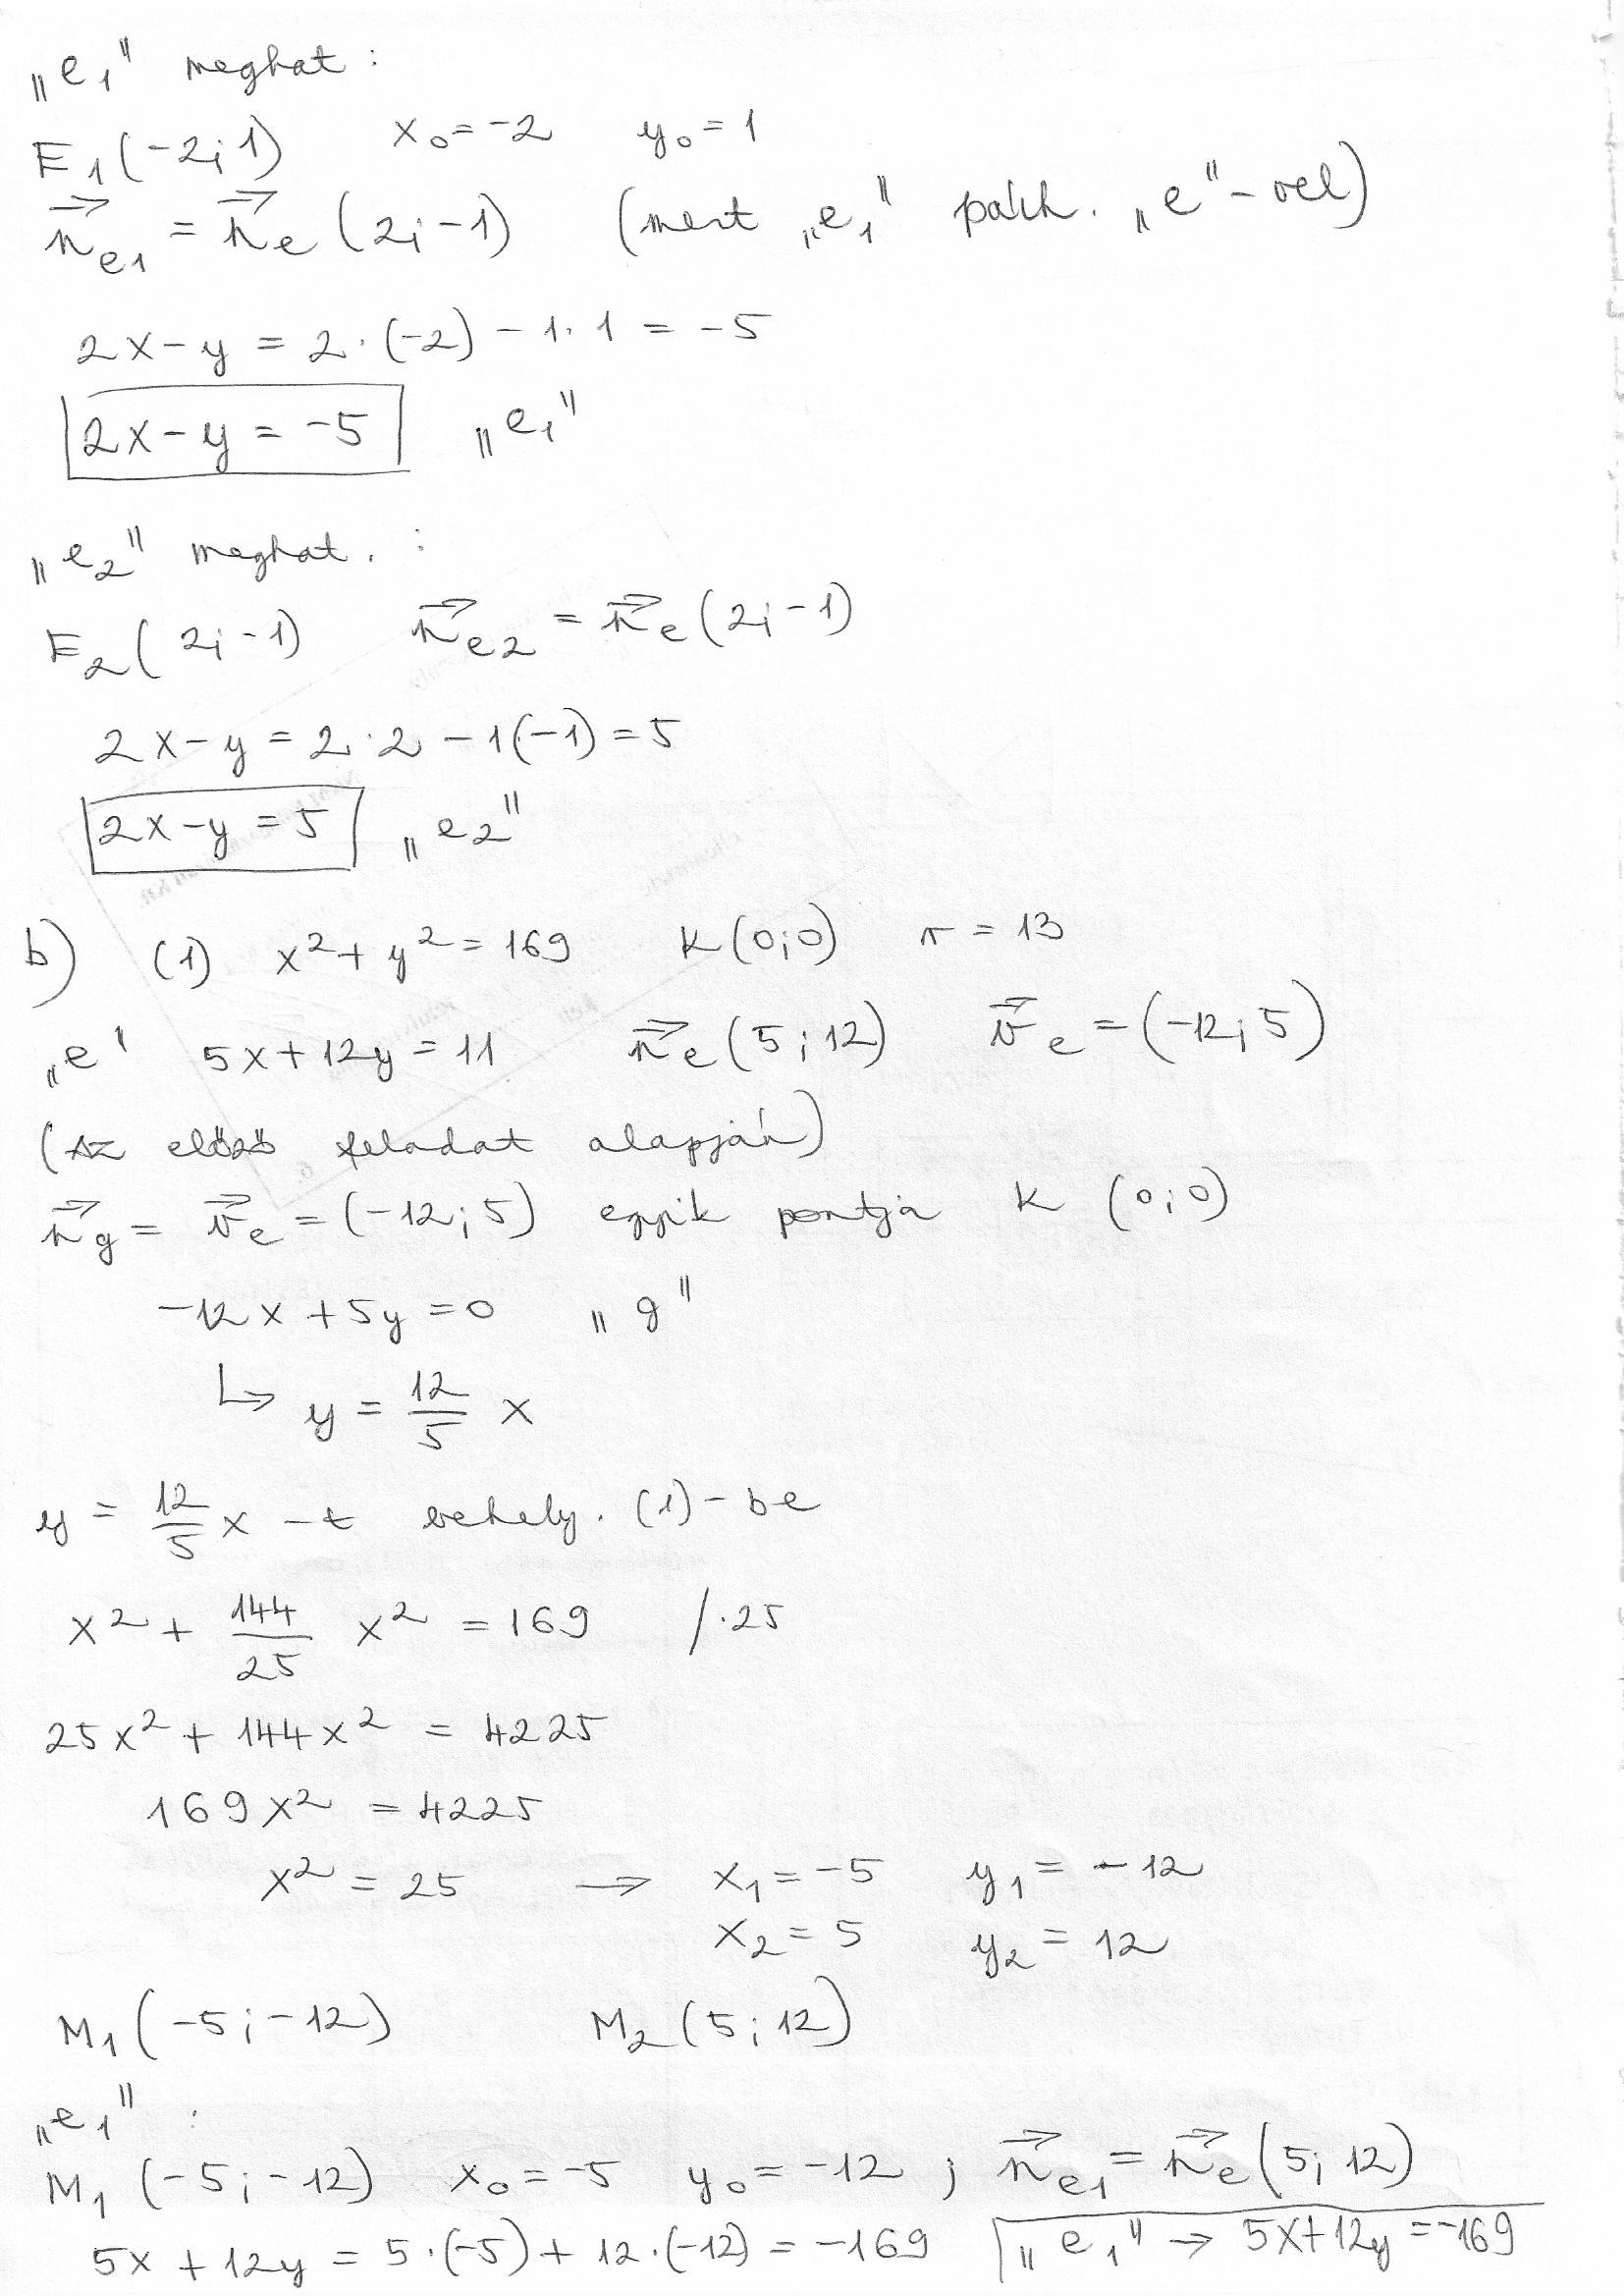 „e₁" meghat :
E₁(-2; 1) x₀ = -2 y₀ = 1
n⃗e₁ = n⃗e (2; -1) (mert „e₁" párh. „e"-vel)
2x - y = 2·(-2) - 1·1 = -5
2x - y = -5 „e₁"
„e₂" meghat. :
E₂(2; -1) n⃗e₂ = n⃗e (2; -1)
2x - y = 2·2 - 1(-1) = 5
2x - y = 5 „e₂"
b) (1) x² + y² = 169 K(0; 0) r = 13
„e' 5x + 12y = 11 n⃗e (5; 12) v⃗e = (-12; 5)
(Az előző feladat alapján)
n⃗g = v⃗e = (-12; 5) egyik pontja K (0; 0)
-12x + 5y = 0 „g"
↳ y = 12/5 x
y = 12/5 x -t behely. (1)-be
x² + 144/25 x² = 169 /·25
25x² + 144x² = 4225
169x² = 4225
x² = 25 → x₁ = -5 y₁ = -12
x₂ = 5 y₂ = 12
M₁(-5; -12) M₂(5; 12)
„e₁" :
M₁(-5; -12) x₀ = -5 y₀ = -12 ; n⃗e₁ = n⃗e (5; 12)
5x + 12y = 5·(-5) + 12·(-12) = -169 „e₁" → 5x + 12y = -169